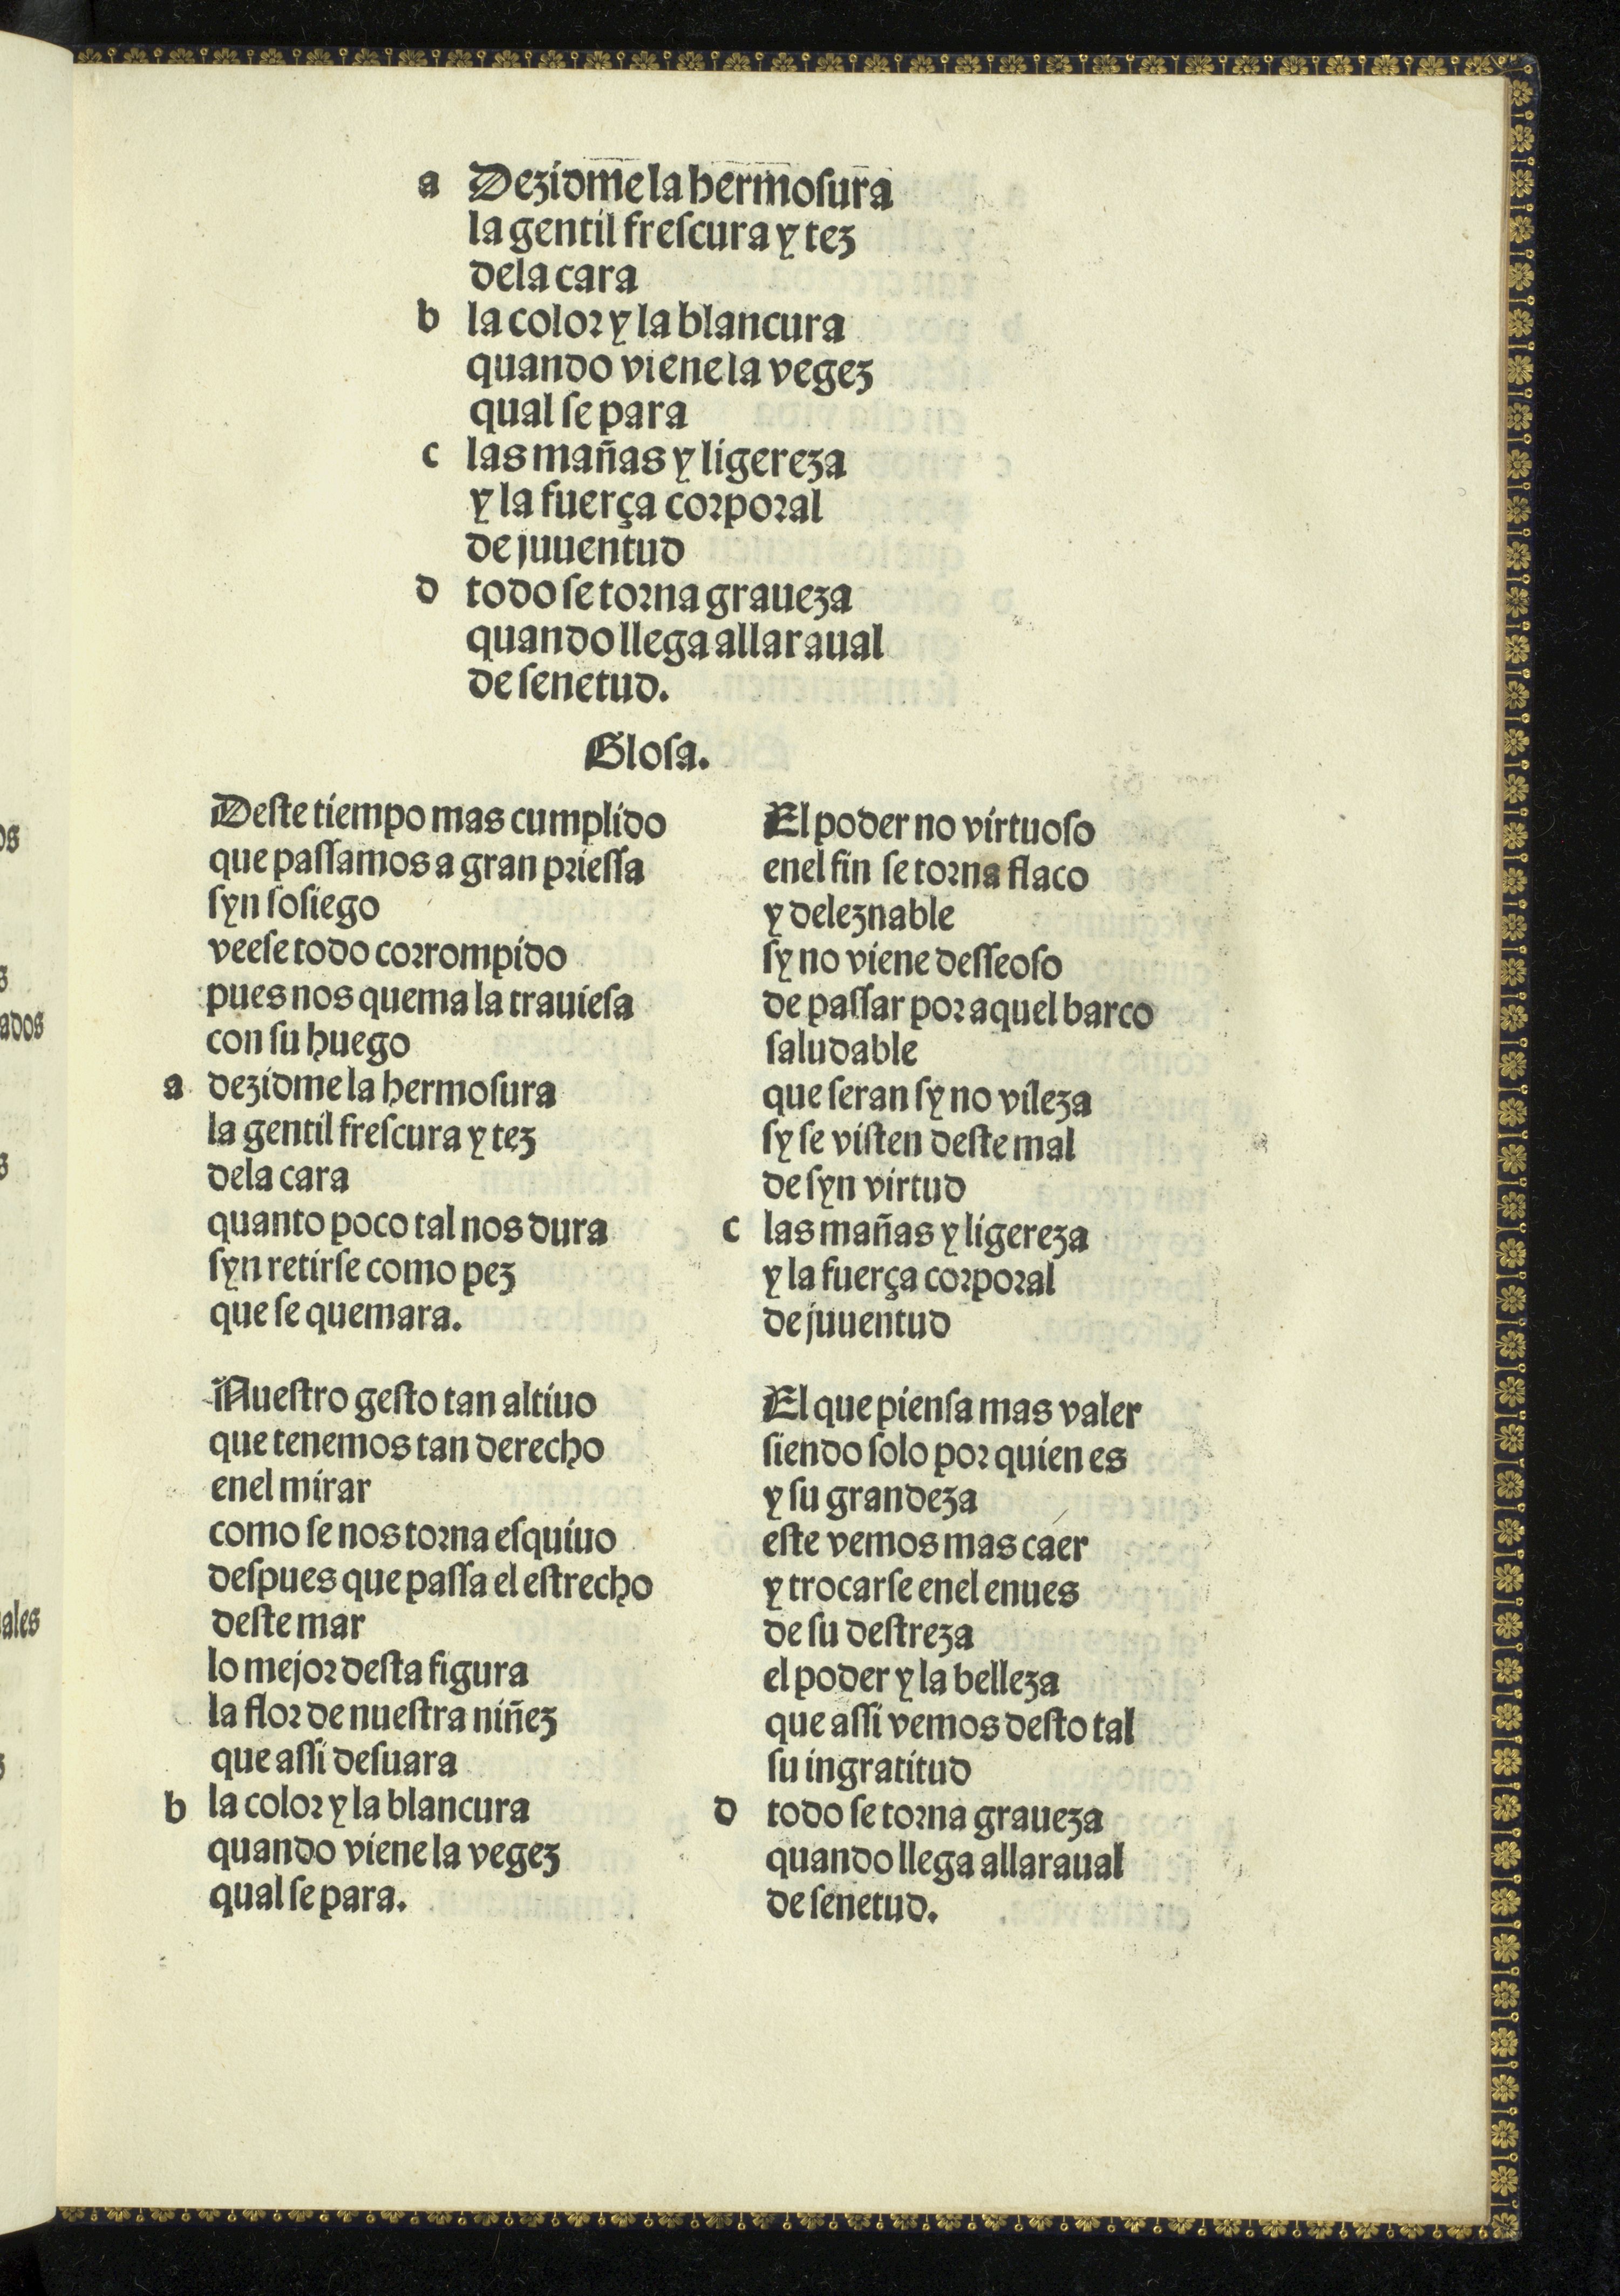 a Dezidme la hermoſura
la gentil freſcura y tez
dela cara
b la color y la blancura
quando viene la vegez
qual ſe para
c las mañas y ligereza
y la fuerça corporal
de juuentud
d todo ſe torna graueza
quando llega allaraual
de ſenetud.
Gloſa.
Deſte tiempo mas cumplido
que paſſamos a gran prieſſa
ſyn ſoſiego
veeſe todo corrompido
pues nos quema la trauieſa
con ſu huego
a dezidme la hermoſura
la gentil freſcura y tez
dela cara
quanto poco tal nos dura
ſyn retirſe como pez
que ſe quemara.
Nueſtro geſto tan altiuo
que tenemos tan derecho
enel mirar
como ſe nos torna eſquiuo
deſpues que paſſa el eſtrecho
deſte mar
lo mejor deſta figura
la flor de nueſtra niñez
que aſſi deſuara
b la color y la blancura
quando viene la vegez
qual ſe para.
El poder no virtuoſo
enel fin ſe torna flaco
y deleznable
ſy no viene deſſeoſo
de paſſar por aquel barco
ſaludable
que ſeran ſy no vileza
ſy ſe viſten deſte mal
de ſyn virtud
c las mañas y ligereza
y la fuerça corporal
de juuentud
El que pienſa mas valer
ſiendo ſolo por quien es
y ſu grandeza
eſte vemos mas caer
y trocarſe enel enues
de ſu deſtreza
el poder y la belleza
que aſſi vemos deſto tal
ſu ingratitud
d todo ſe torna graueza
quando llega allaraual
de ſenetud.
ados
ales